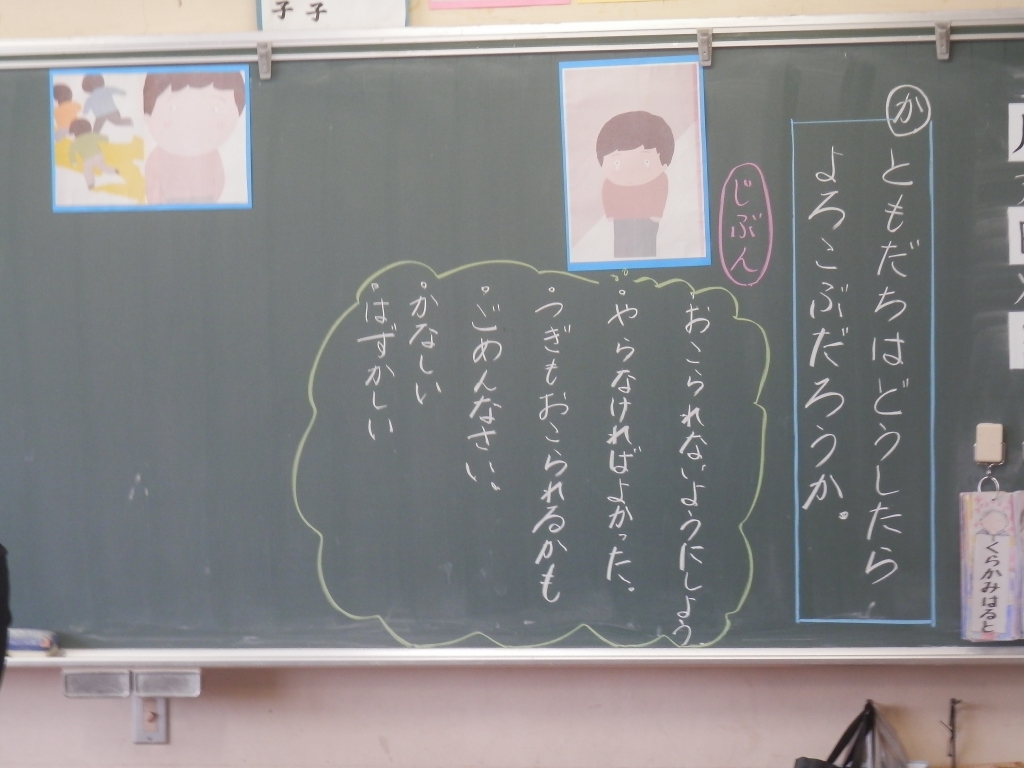 子子
か
ともだちはどうしたら
よろこぶだろうか。
じぶん
・おこられないようにしよう
・やらなければよかった。
・つぎもおこられるかも
・ごめんなさい、
・かなしい
・はずかしい
くらかみはると